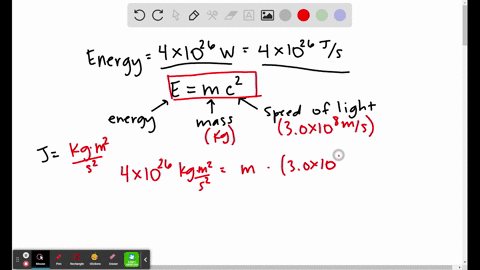 Energy = 4×10²⁶ W = 4×10²⁶ J/s
E = m c²
energy
mass
(kg)
speed of light
(3.0×10⁸ m/s)
J = kg·m²/s²
4×10²⁶ kg·m²/s² = m · (3.0×10